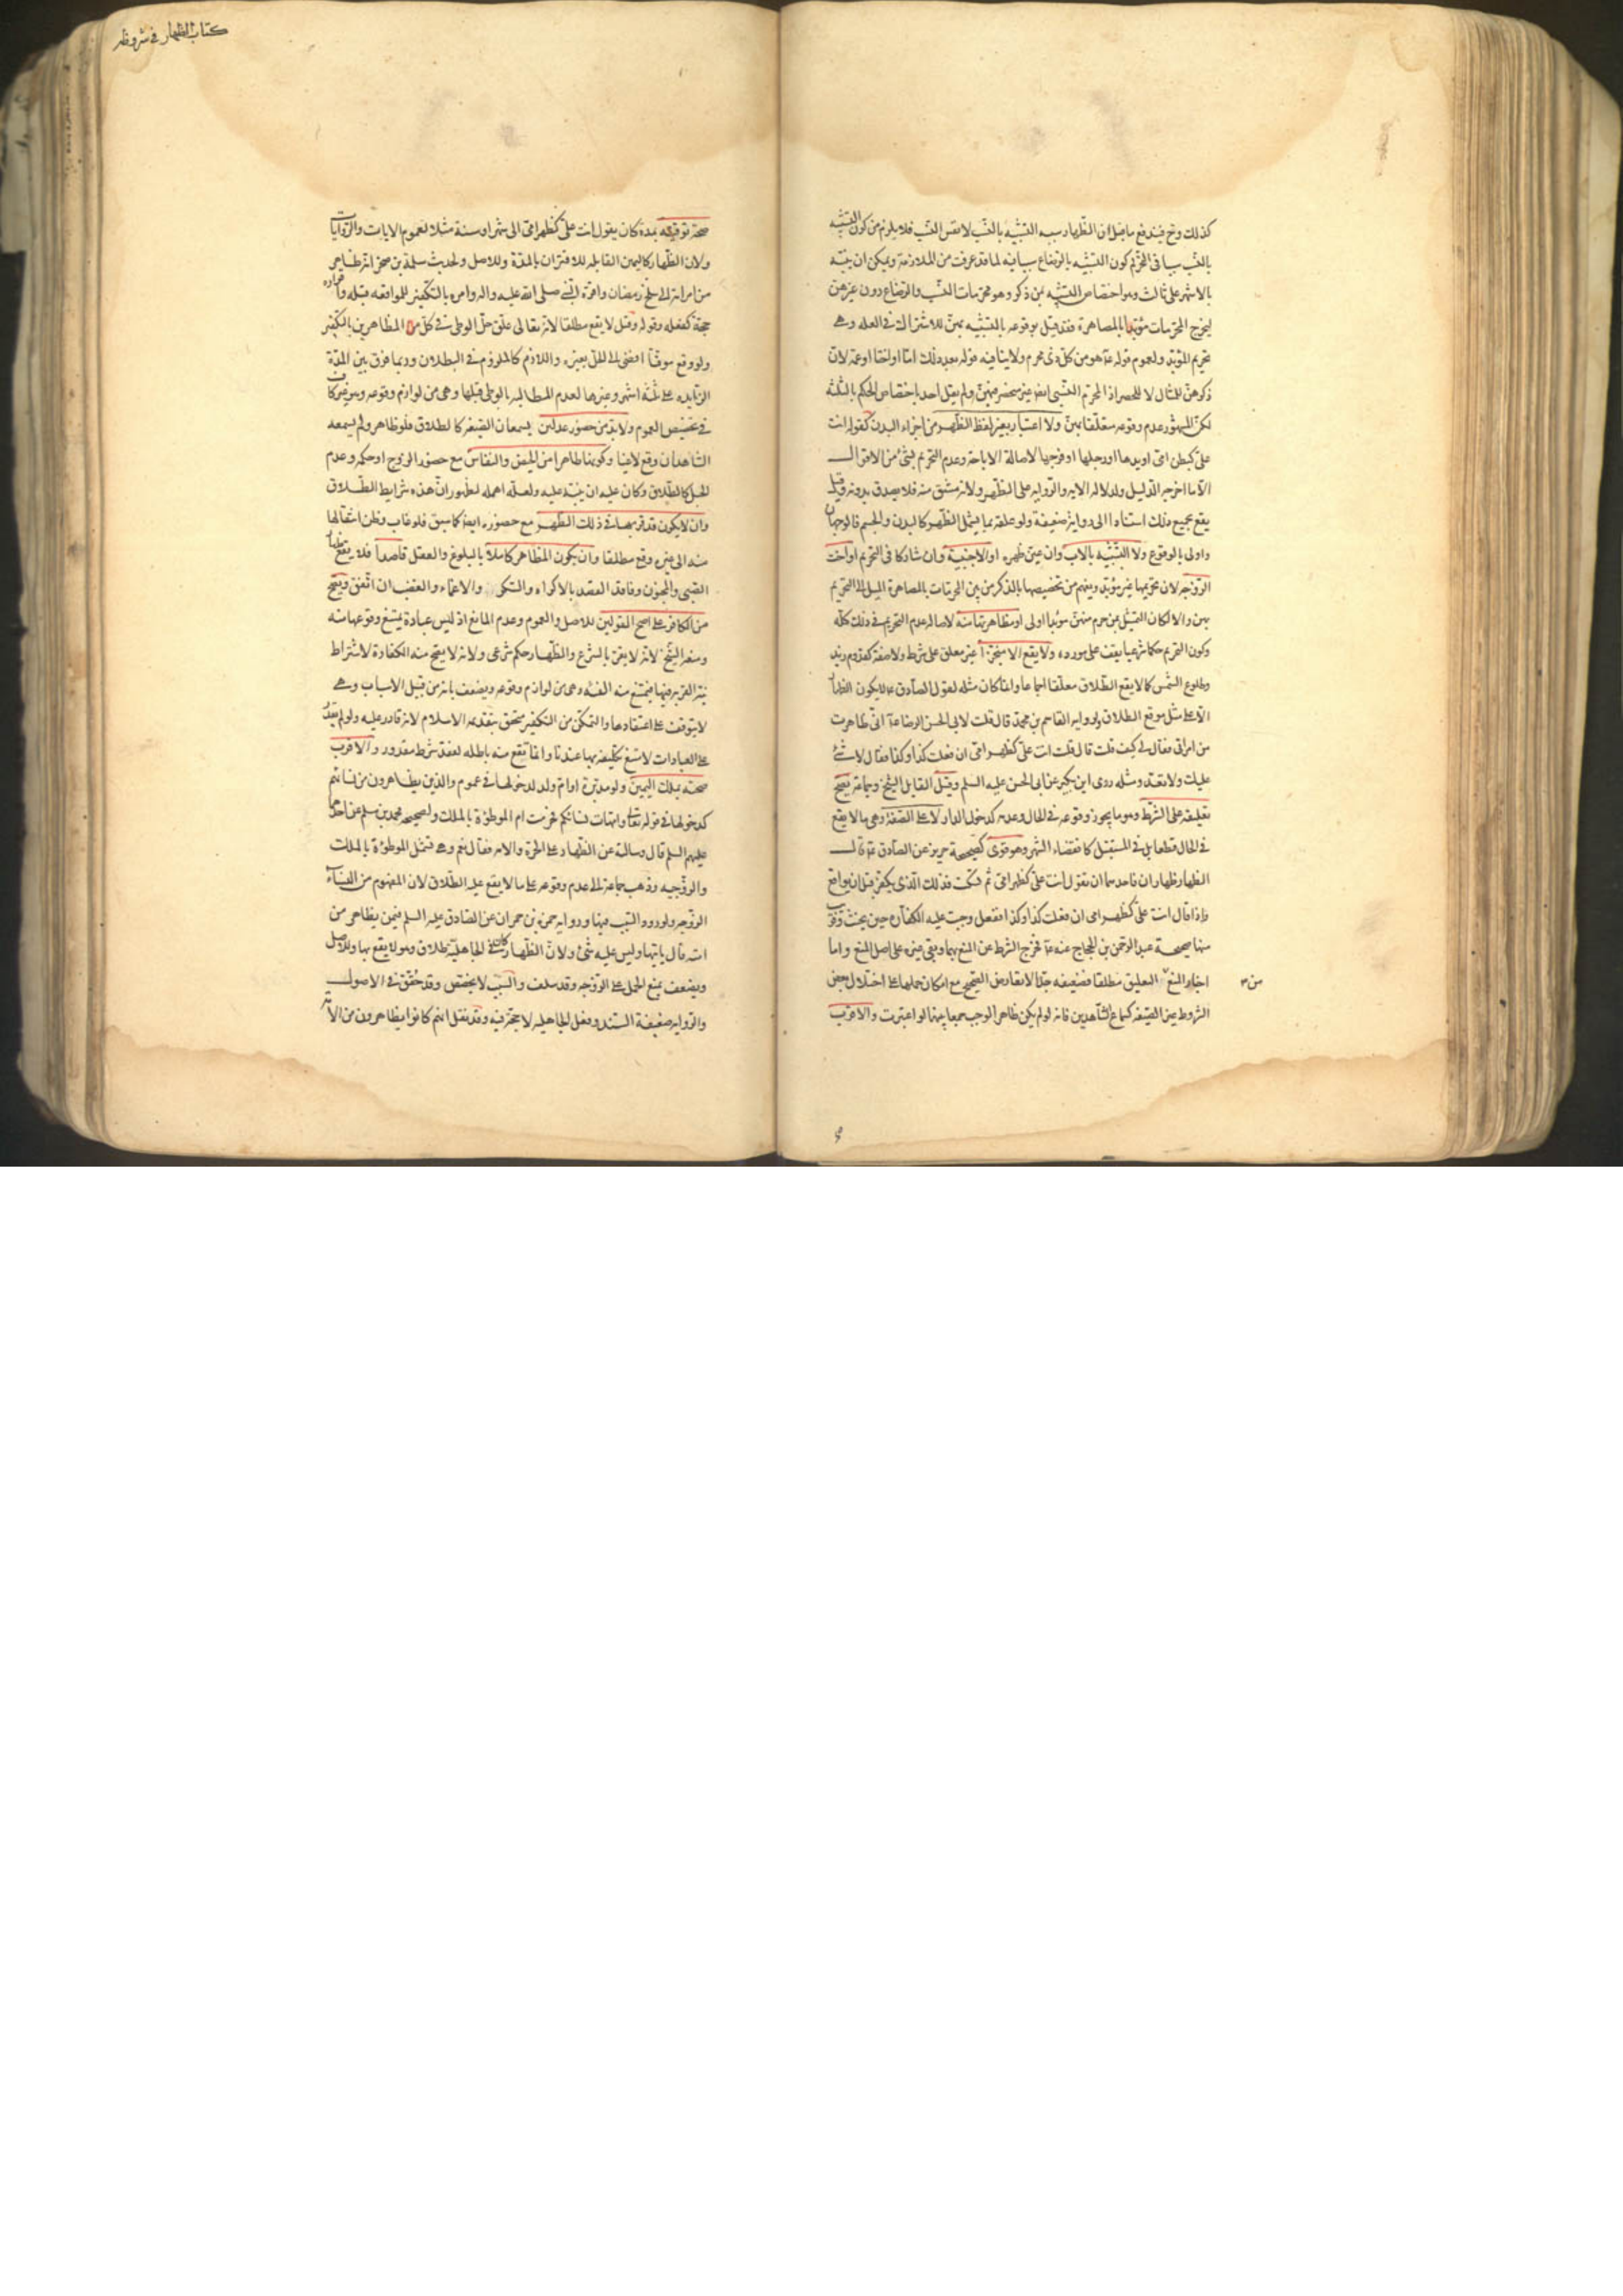 كذلك وح فيندفع ما قيل ان الظهار سببه التشبيه بالنسب لا نفس النسب فلا يلزم من كون التشبيه
بالنسب سببا في التحريم كون التشبيه بالرضاع سببا فيه لما قد عرفت من الملازمة ويمكن ان ينبه
بالاشهر على ثالث وهو اختصاص التشبيه بمن ذكر وهو محرمات النسب والرضاع دون غيرهن
ليخرج المحرمات مؤبدا بالمصاهرة فقد قيل بوقوعه بالتشبيه بهن للاشتراك في العله وهي
تحريم المؤبد ولعموم قوله ع هو من كل ذي محرم ولا ينافيه قوله بعد ذلك اما او اختا او عمة لان
ذكرهن للمثال لا للحصر اذ المحرم النسبي ايض غير منحصر فيهن ولم يقل احد باختصاص الحكم بالثلثه
لكن المشهور عدم وقوعه متعلقا بهن ولا اعتبار بغير لفظ الظهر من اجزاء البدن كقوله انت
علي كبطن امي او يدها او رجلها او فرجها لاصالة الاباحة وعدم التحريم بشئ من الاقوال
الا ما اخرجه الدليل ولدلاله الايه والروايه على الظهر ولانه مشتق منه فلا يصدق بدونه وقيل
يقع بجميع ذلك استنادا الى رواية ضعيفة ولو علقه بما يشمل الظهر كالبدن والجسم فالوجهان
واولى بالوقوع ولا التشبيه بالاب وان عين ظهره او الاجنبية وان شاركا في التحريم او اخت
الزوجه لان تحريمها غير مؤبد ويفهم من تخصيصها بالذكر من بين المحرمات بالمصاهرة الميل الى التحريم
بهن والا لكان التمثيل بمن حرم منهن مؤبدا اولى او مظاهرتها منه لاصاله عدم التحريم في ذلك كله
وكون التحريم حكما شرعيا يقف على مورده ولا يقع الا منجزا غير معلق على شرط ولا صفة كقدوم زيد
وطلوع الشمس كما لا يقع الطلاق معلقا اجماعا وانما كان مثله لقول الصادق ع لا يكون الظهار
الا على مثل موقع الطلاق ولروايه القاسم بن محمد قال قلت لابي الحسن الرضا ع اني ظاهرت
من امراتي فقال لي كيف قلت قال قلت انت علي كظهر امي ان فعلت كذا وكذا فقال لا شئ
عليك ولا تعد ومثله روى ابن بكير عن ابي الحسن عليه السلم وقيل القايل الشيخ وجماعة يصح
تعليقه على الشرط وهو ما يجوز وقوعه في الحال وعدمه كدخول الدار لا على الصفة وهي ما لا يقع
في الحال قطعا بل في المستقبل كانقضاء الشهر وهو قوى كصحيحة حريز عن الصادق ع قال
الظهار ظهاران فاحدهما ان تقول انت علي كظهر امي ثم تسكت فذلك الذي يكفر قبل ان يواقع
فاذا قال انت علي كظهر امي ان فعلت كذا وكذا ففعل وجبت عليه الكفاره حين يحنث وقريب
منها صحيحة عبد الرحمن بن الحجاج عنه ع فخرج الشرط عن المنع بهما وبقي غيره على اصل المنع واما
اخبار المنع من التعليق مطلقا فضعيفه جدا لا تعارض الصحيح مع امكان حملها على اختلال بعض
الشروط غير الصيغه كسماع الشاهدين فانه لو لم يكن ظاهرا لوجب جمعا بينهما لو اعتبرت والاقرب
كتاب الظهار في شروطه
صحة توقيته بمدة كان يقول انت علي كظهر امي الى شهر او سنة مثلا لعموم الايات والروايات
ولان الظهار كاليمين القابله للاقتران بالمدة وللاصل ولحديث سلمة بن صخر انه ظاهر
من امراته الى سلخ رمضان واقره النبي صلى الله عليه واله وامره بالتكفير للمواقعه قبله واقراره
حجة كفعله وقوله وقيل لا يقع مطلقا لانه تعالى علق حل الوطى في كل من المظاهرين بالتكفير
ولو وقع موقتا افضى الى الحل بغيره واللازم كالملزوم في البطلان وربما فرق بين المدة
الزايده على ثلثة اشهر وغيرها لعدم المطالبه بالوطى قبلها وهي من لوازم وقوعه وهو غير كاف
في تخصيص العموم ولابد من حضور عدلين يسمعان الصيغه كالطلاق فلو ظاهر ولم يسمعه
الشاهدان وقع لاغيا وكونها طاهرا من الحيض والنفاس مع حضور الزوج او حكمه وعدم
الحبل كالطلاق وكان عليه ان ينبه عليه ولعله اهمله لظهور ان هذه شرايط الطلاق
وان لا يكون قد قربها في ذلك الطهر مع حضوره ايضا كما سبق فلو غاب وظن انتقالها
منه الى غيره وقع مطلقا وان يكون المظاهر كاملا بالبلوغ والعقل قاصدا فلا يقع ظهار
الصبي والمجنون وفاقد القصد بالاكراه والسكر والاغماء والغضب ان اتفق ويصح
من الكافر على اصح القولين للاصل والعموم وعدم المانع اذ ليس عبادة يمتنع وقوعها منه
ومنعه الشيخ لانه لا يقر بالشرع والظهار حكم شرعي ولانه لا يصح منه الكفارة لاشتراط
نية القربه فيها فيمتنع منه الفئه وهي من لوازم وقوعه ويضعف بانه من قبيل الاسباب وهي
لا يتوقف على اعتقادها والتمكن من التكفير متحقق بتقديمه الاسلام لانه قادر عليه ولو لم يقدر
على العبادات لامتنع تكليفه بها عندنا وانما تقع منه باطله لفقد شرط مقدور والاقرب
صحته بملك اليمين ولو مدبرة او ام ولد لدخولها في عموم والذين يظاهرون من نسائهم
كدخولها في قوله تعالى وامهات نسائكم فحرمت ام الموطؤة بالملك ولصحيحه محمد بن مسلم عن احدهما
عليهم السلم قال وسالته عن الظهار على الحرة والامه فقال نعم وهي تشمل الموطؤة بالملك
والزوجيه وذهب جماعة الى عدم وقوعه على ما لا يقع عليه الطلاق لان المفهوم من النساء
الزوجه ولورود السبب فيها وروايه حمزة بن حمران عن الصادق عليه السلم فيمن يظاهر من
امته قال ياتيها وليس عليه شئ ولان الظهار كان في الجاهلية طلاقا وهو لا يقع بها وللاصل
ويضعف بمنع الحمل على الزوجه وقد سلف والسبب لا يخصص وقد حقق في الاصول
والروايه ضعيفة السند وفعل الجاهليه لا حجة فيه وقد نقل انهم كانوا يظاهرون من الامة